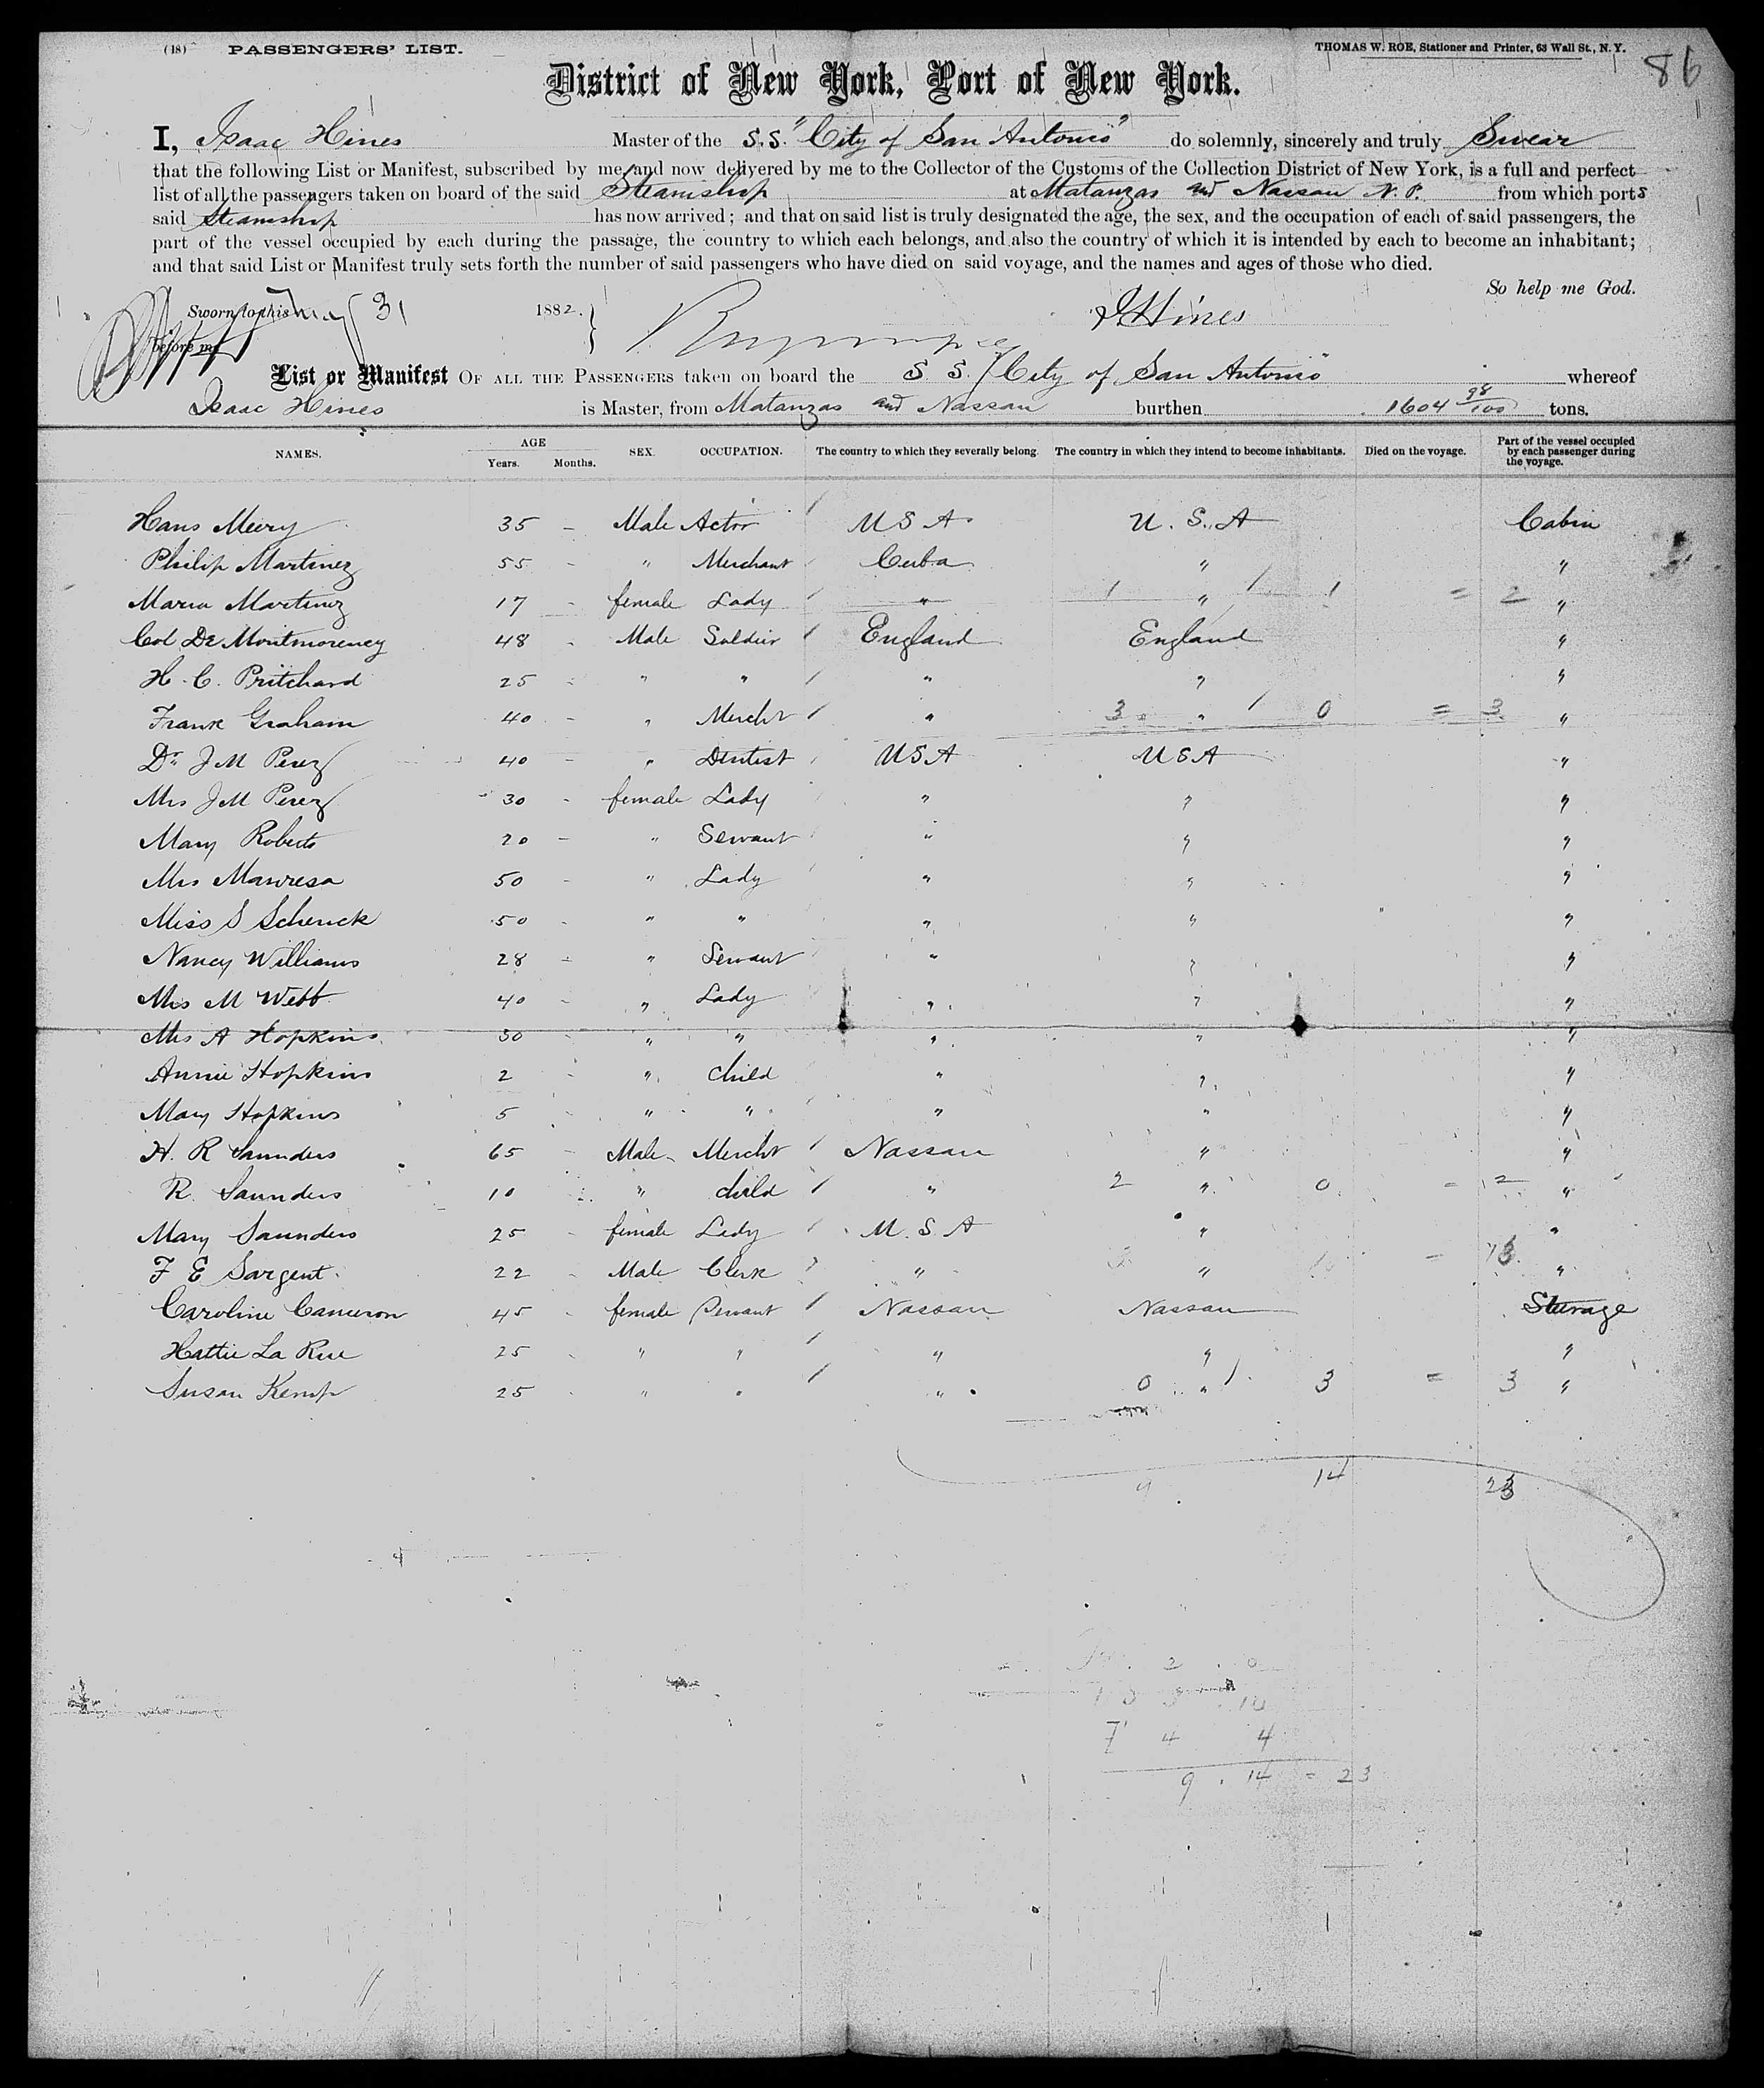 (18) PASSENGERS' LIST. THOMAS W. ROE, Stationer and Printer, 63 Wall St., N.Y.
86
District of New York, Port of New York.
I, Isaac Hines Master of the S.S. "City of San Antonio" do solemnly, sincerely and truly Swear
that the following List or Manifest, subscribed by me and now delivered by me to the Collector of the Customs of the Collection District of New York, is a full and perfect
list of all the passengers taken on board of the said Steamship at Matanzas and Nassau N. P. from which ports
said Steamship has now arrived; and that on said list is truly designated the age, the sex, and the occupation of each of said passengers, the
part of the vessel occupied by each during the passage, the country to which each belongs, and also the country of which it is intended by each to become an inhabitant;
and that said List or Manifest truly sets forth the number of said passengers who have died on said voyage, and the names and ages of those who died.
So help me God.
Sworn to this May 31 1882. I Hines
before me
List or Manifest OF ALL THE PASSENGERS taken on board the S. S. "City of San Antonio" whereof
Isaac Hines is Master, from Matanzas and Nassau burthen 1604 98/100 tons.
NAMES. AGE Years. Months. SEX. OCCUPATION. The country to which they severally belong. The country in which they intend to become inhabitants. Died on the voyage. Part of the vessel occupied by each passenger during the voyage.
Hans Meery 35 - Male Actor U S A U. S. A Cabin
Philip Martinez 55 - " Merchant Cuba " "
Maria Martinez 17 - female Lady " 1 " 1 = 2 "
Col De Montmorency 48 - Male Soldier England England "
H. C. Pritchard 25 - " " " " "
Frank Graham 40 - " Mercht " 3 " 0 = 3 "
Dr J M Perez 40 - " Dentist U S A U S A "
Mrs J M Perez 30 - female Lady " " "
Mary Roberts 20 - " Servant " " "
Mrs Manresa 50 - " Lady " " "
Miss S Schenck 50 - " " " " "
Nancy Williams 28 - " Servant " " "
Mrs M Webb 40 - " Lady " " "
Mrs A Hopkins 30 - " " " " "
Annie Hopkins 2 - " Child " " "
Mary Hopkins 5 - " " " " "
H. R Saunders 65 - Male Mercht Nassau " "
R. Saunders 10 - " child " 2 " 0 - 2 "
Mary Saunders 25 - female Lady U. S. A " "
F E Sargent 22 - Male Clerk " " - 13 "
Caroline Cameron 45 - female Servant Nassau Nassau Steerage
Hattie La Rue 25 - " " " " "
Susan Kemp 25 - " " " 0 " 3 = 3 "
9 14 23
2 0
10
7 4 4
9 . 14 = 23